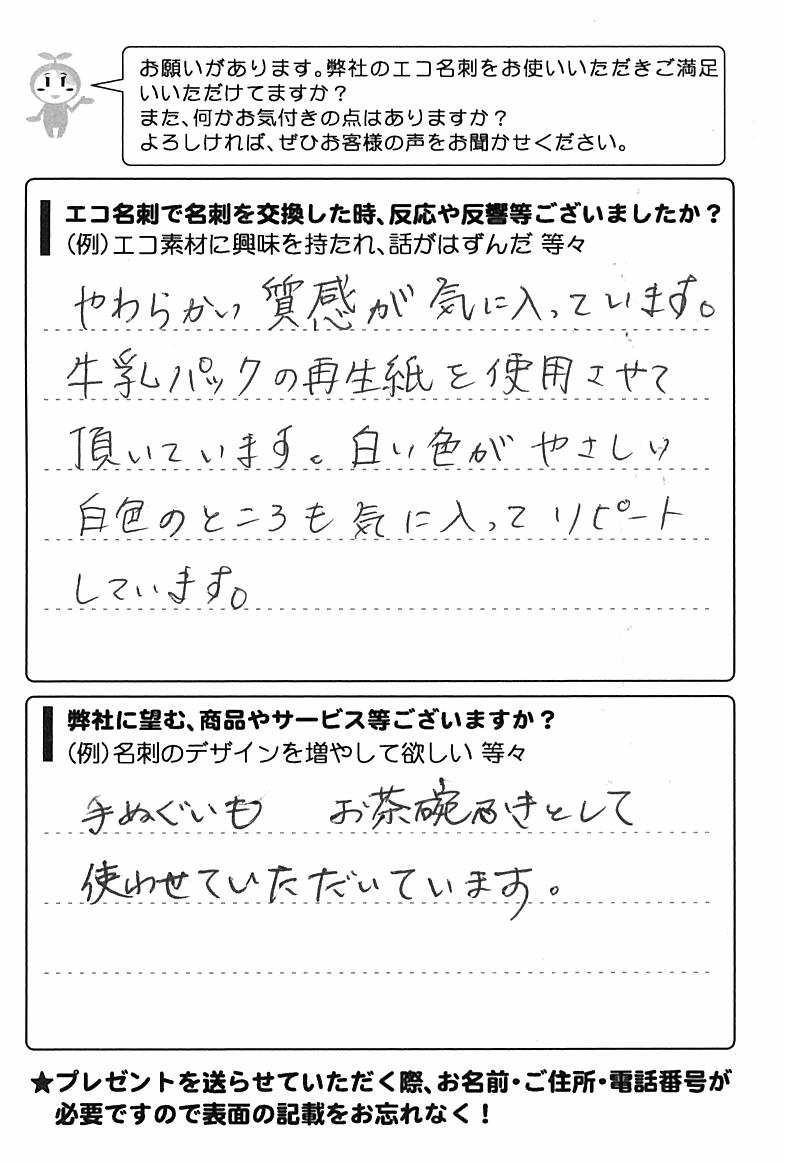 お願いがあります。弊社のエコ名刺をお使いいただきご満足
いいただけてますか？
また、何かお気付きの点はありますか？
よろしければ、ぜひお客様の声をお聞かせください。
エコ名刺で名刺を交換した時、反応や反響等ございましたか？
（例）エコ素材に興味を持たれ、話がはずんだ 等々
やわらかい質感が気に入っています。
牛乳パックの再生紙を使用させて
頂いています。白い色がやさしい
白色のところも気に入ってリピート
しています。
弊社に望む、商品やサービス等ございますか？
（例）名刺のデザインを増やして欲しい 等々
手ぬぐいも お茶碗ふきとして
使わせていただいています。
★プレゼントを送らせていただく際、お名前・ご住所・電話番号が
必要ですので表面の記載をお忘れなく！